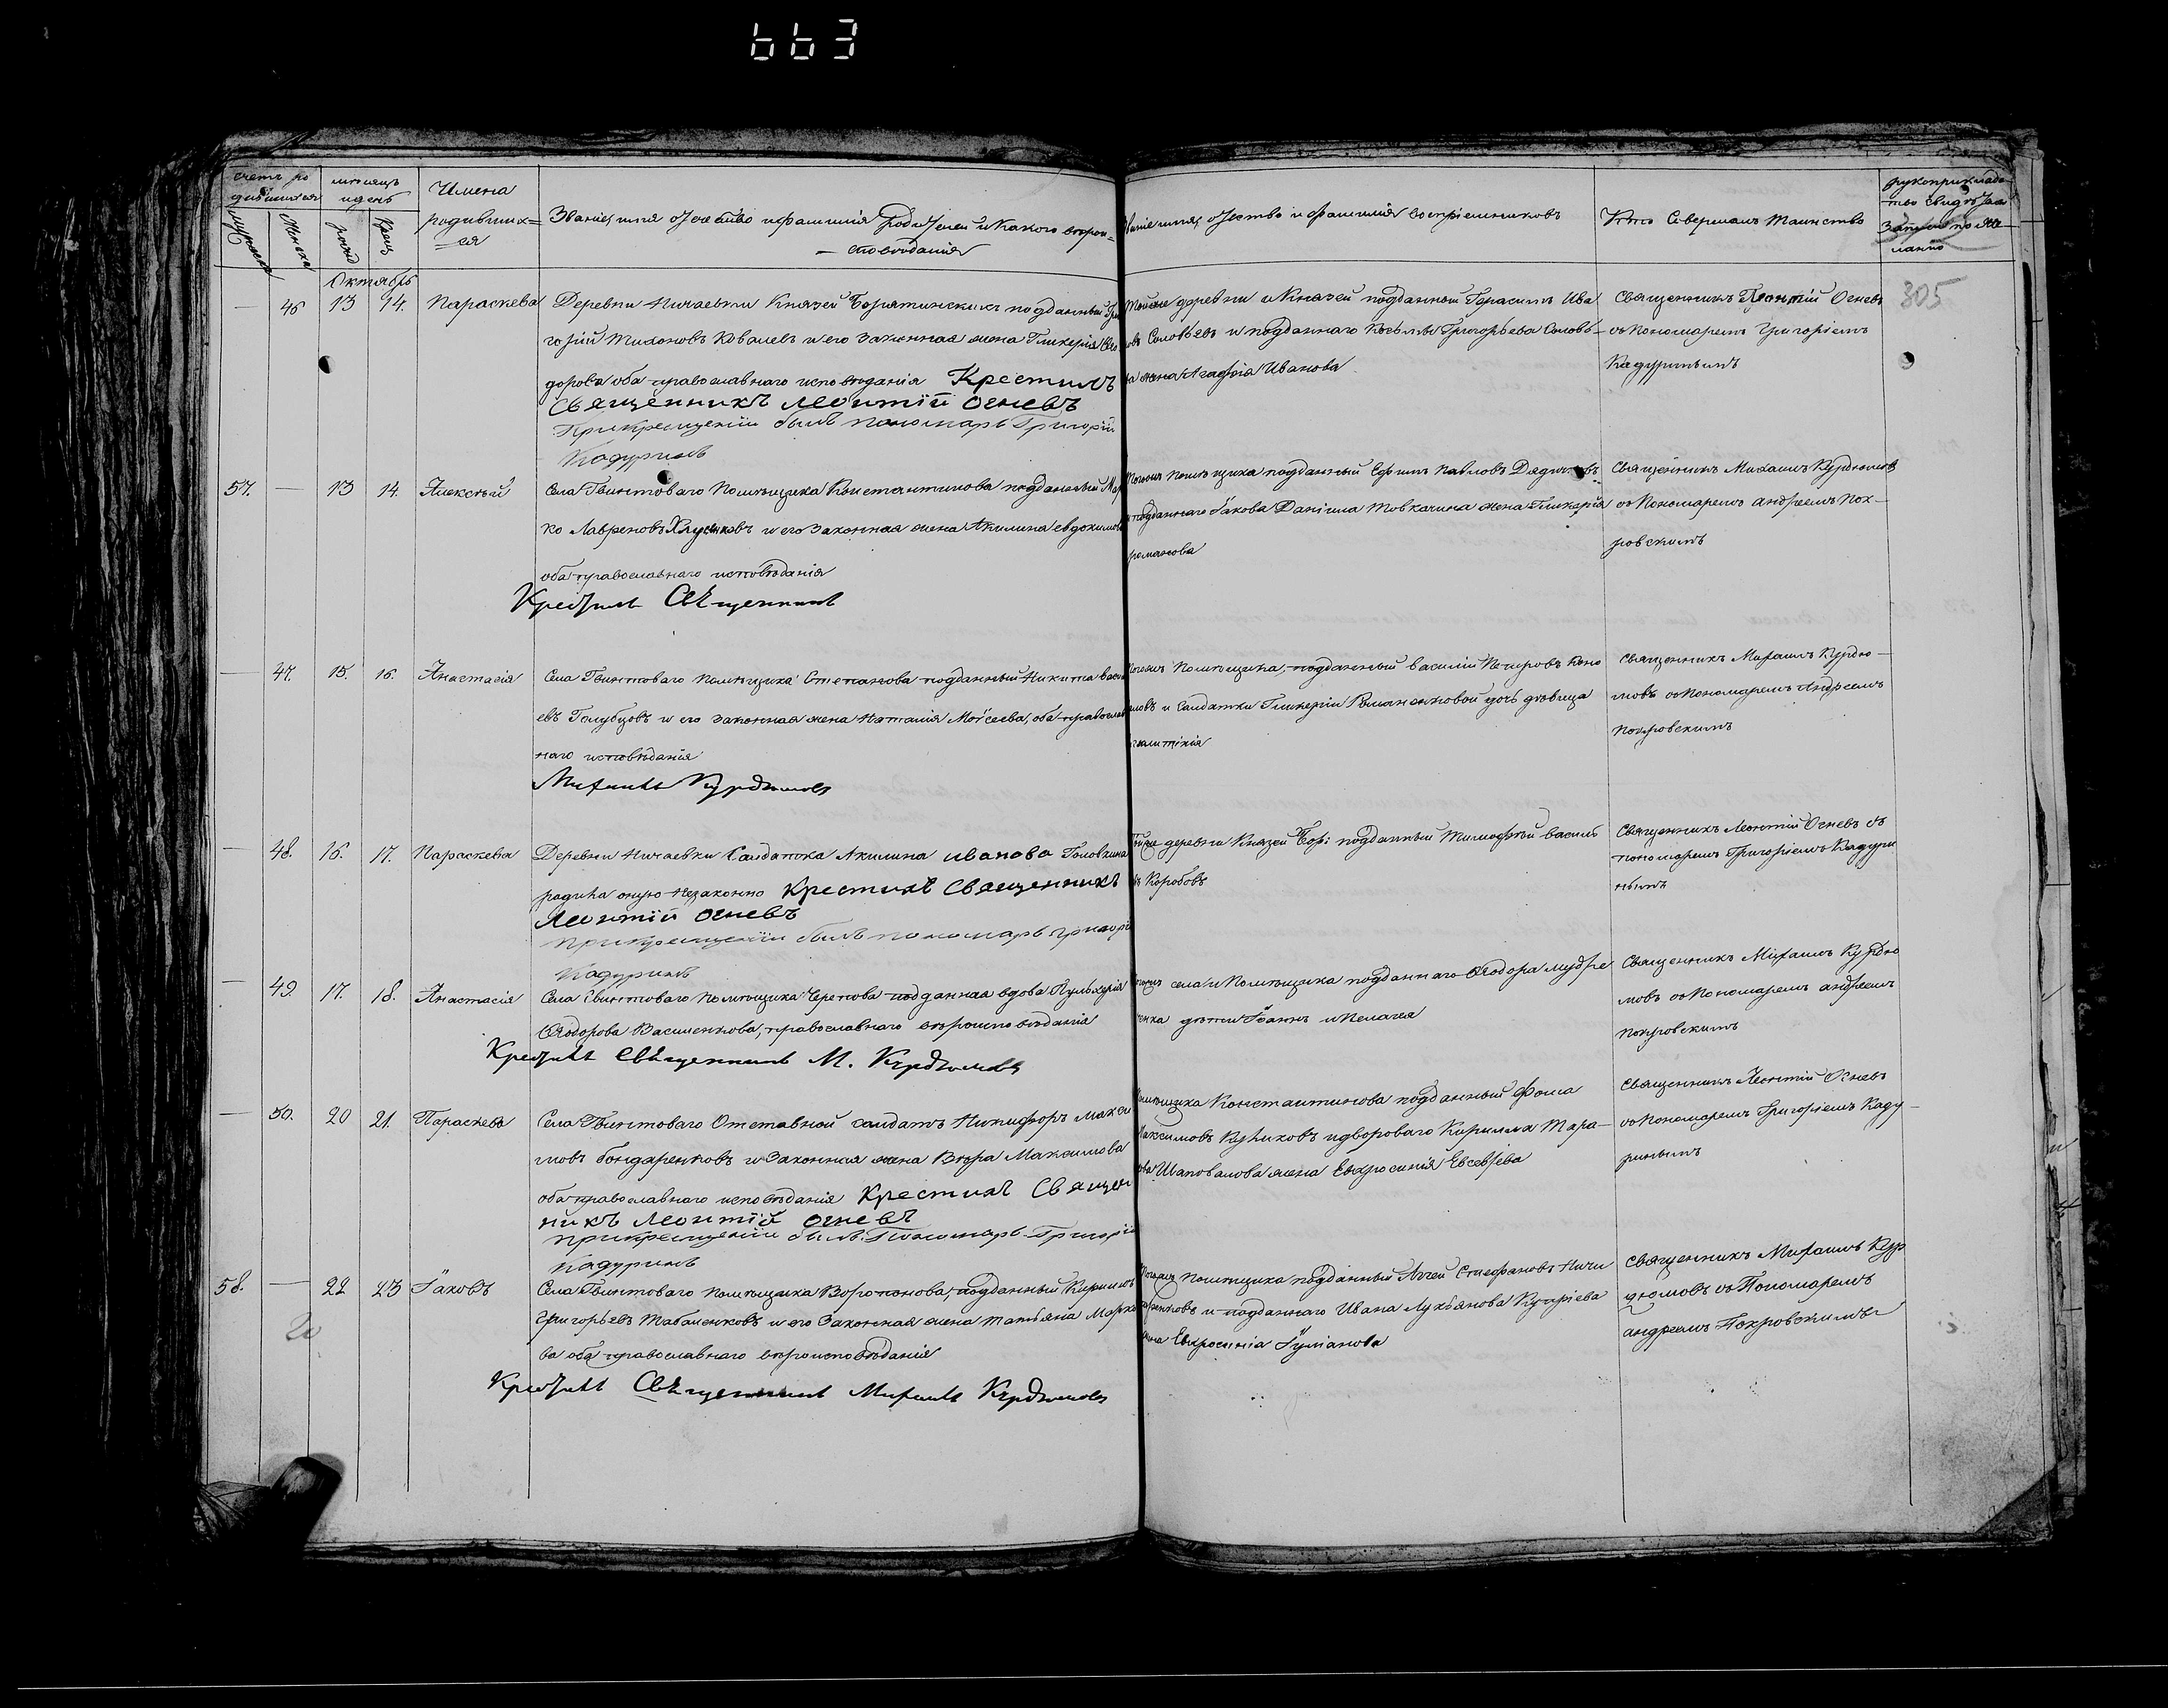 663
счетъ ро
дившихся
мѣсяцъ
и день
Имена
родивших=
ся
Званіе, имя отчество и фамилія Родителей и какого вѣрои=
– споведанія
Званіе имя, отчество и фамилія воспріемниковъ
Кто Совершалъ таинство
рукоприклад–
ство свидѣтел
записи по же–
ланію
Мужеска
Женска
рожд
Крещ
Октябрь
305
— 46 13 14. Параскева
Деревни Ничаевки Князей Борятинскихъ подданный Гри
горій Тихоновъ Ковалевъ и его законная жена Гликерія Ѳео
дорова оба православнаго исповѣданія Крестилъ
Священникъ Леонтій Огневъ
При крещеніи былъ пономарь Григорій
Кадуринъ
Тойже деревни и Князей подданный Герасимъ Ива
овъ Соловьевъ и подданнаго Косьмы Григорьева Соловь–
ва жена Агафія Иванова
Священникъ Леонтій Огневъ
съ Пономаремъ Григоріемъ
Кадуринымъ
57. — 13 14. Алексѣй
Села Гвинтоваго Помѣщика Константинова подданный Мар
ко Лавреновъ и его Законная жена Акилина Евдокимова
оба православнаго исповѣданія
Крестилъ Священникъ
Тогожъ помѣщика подданный Ефимъ Павловъ
и подданнаго Іакова Даніила Товкачина жена Гликерія
романова
Священникъ Михаилъ Курдюмовъ
съ Пономаремъ Андреемъ Пок–
ровскимъ
— 47. 15. 16. Анастасія
Села Гвинтоваго помѣщика Степанова подданный Никита Васи
евъ Голубцовъ и его законная жена Наталія Моѵсеева, оба православ
наго исповѣданія
Михаилъ Курдюмовъ
Тогожъ Помѣщика, подданный Василій Петровъ Коно
и Солдатки Гликеріи Романенковой дочь дѣвица
Священникъ Михаилъ Курдю–
мовъ съ Пономаремъ Андреемъ
покровскимъ
— 48. 16. 17. Параскева
Деревни Ничаевки Солдатка Акилина Иванова Головкина
родила оную незаконно Крестилъ Священникъ
Леонтій Огневъ
при крещеніи былъ пономарь Григорій
Кадуринъ
Тойже деревни Князей Бор: подданный Тимофѣй Василь
въ Коробовъ
Священникъ Леонтій Огневъ съ
пономаремъ Григоріемъ Кадури
нымъ
— 49. 17. 18. Анастасія
Села Гвинтоваго помѣщика Черепова подданная вдова Пульхерія
Ѳеодорова Василенкова, православнаго вѣроисповѣданія
Крестилъ Священникъ М. Курдюмовъ
Тогожъ села и Помѣщика подданнаго Ѳеодора Мудре
ченка дѣти Іоаннъ и Пелагея
Священникъ Михаилъ Курдю
мовъ съ Пономаремъ Андреемъ
покровскимъ
— 50. 20 21. Параскева
Села Гвинтоваго Отставной солдатъ Никифоръ Макси
мовъ Бондаренковъ и Законная жена Вѣра Максимова
оба православнаго исповѣданія Крестилъ Священ
никъ Леонтій Огневъ
при крещеніи былъ Пономарь Григорій
Кадуринъ
Помѣщика Константинова подданный Фома
Максимовъ Куликовъ и двороваго Кирилла Тара–
сова Шаповалова жена Евфросинія Евсевіева
Священникъ Леонтій Огневъ
съ Пономаремъ Григоріемъ Каду–
ринымъ
58. — 22 23 Іаковъ
Села Гвинтоваго помѣщика Воропонова, подданный Кириллъ
Григорьевъ Табаленковъ и его Законная жена Татьяна Марко
ва оба православнаго вѣроисповѣданія
Крестилъ Священникъ Михаилъ Курдюмовъ
20
Тогожъ помѣщика подданный Аггей Стефановъ Ничи
поренковъ и подданнаго Ивана Лукьянова
жена Евфросинія
Священникъ Михаилъ Кур
дюмовъ съ Пономаремъ
андреемъ Покровскимъ